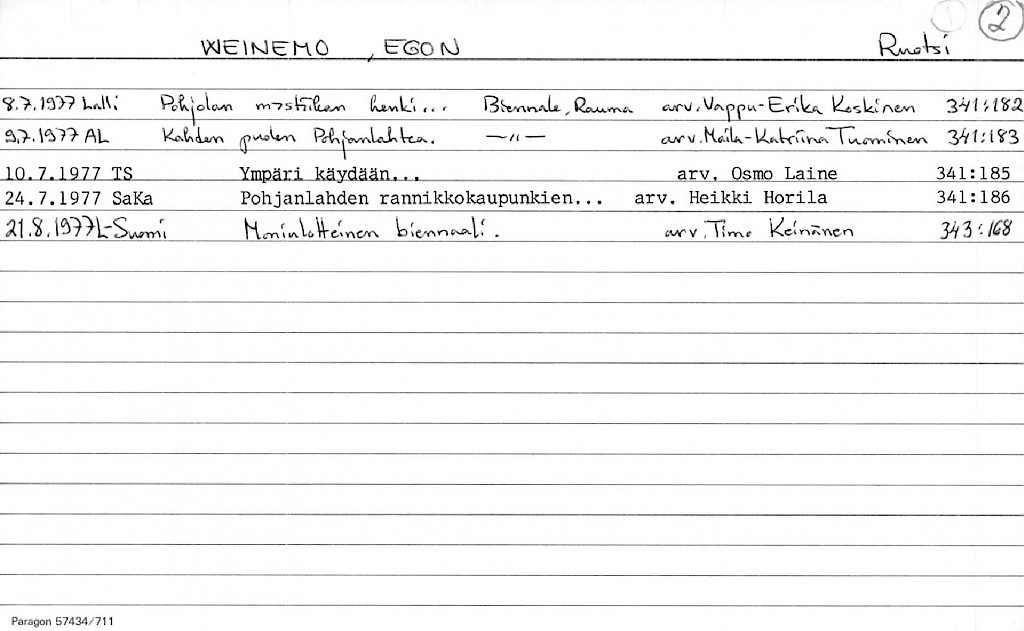 1 2
WEINEMO, EGON Ruotsi
8.7.1977 Lalli Pohjolan mystiikan henki... Biennale, Rauma arv. Vappu-Erika Koskinen 341:182
9.7.1977 AL Kahden puolen Pohjanlahtea. —"— arv. Maila-Katriina Tuominen 341:183
10.7.1977 TS Ympäri käydään... arv. Osmo Laine 341:185
24.7.1977 SaKa Pohjanlahden rannikkokaupunkien... arv. Heikki Horila 341:186
21.8.1977 L-Suomi Moniulotteinen biennaali. arv. Timo Keinänen 343:168
Paragon 57434/711